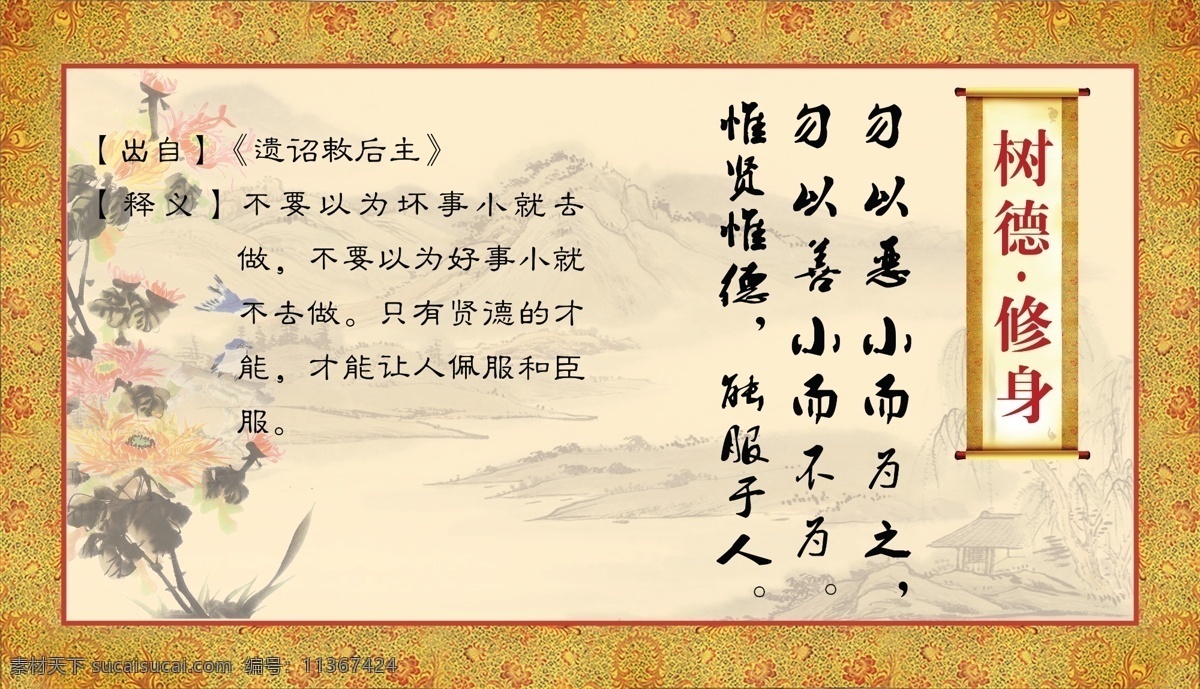 树德·修身
勿以恶小而为之，
勿以善小而不为。
惟贤惟德，能服于人。
【出自】《遗诏敕后主》
【释义】不要以为坏事小就去
做，不要以为好事小就
不去做。只有贤德的才
能，才能让人佩服和臣
服。
素材天下 sucaisucai.com 编号：11367424